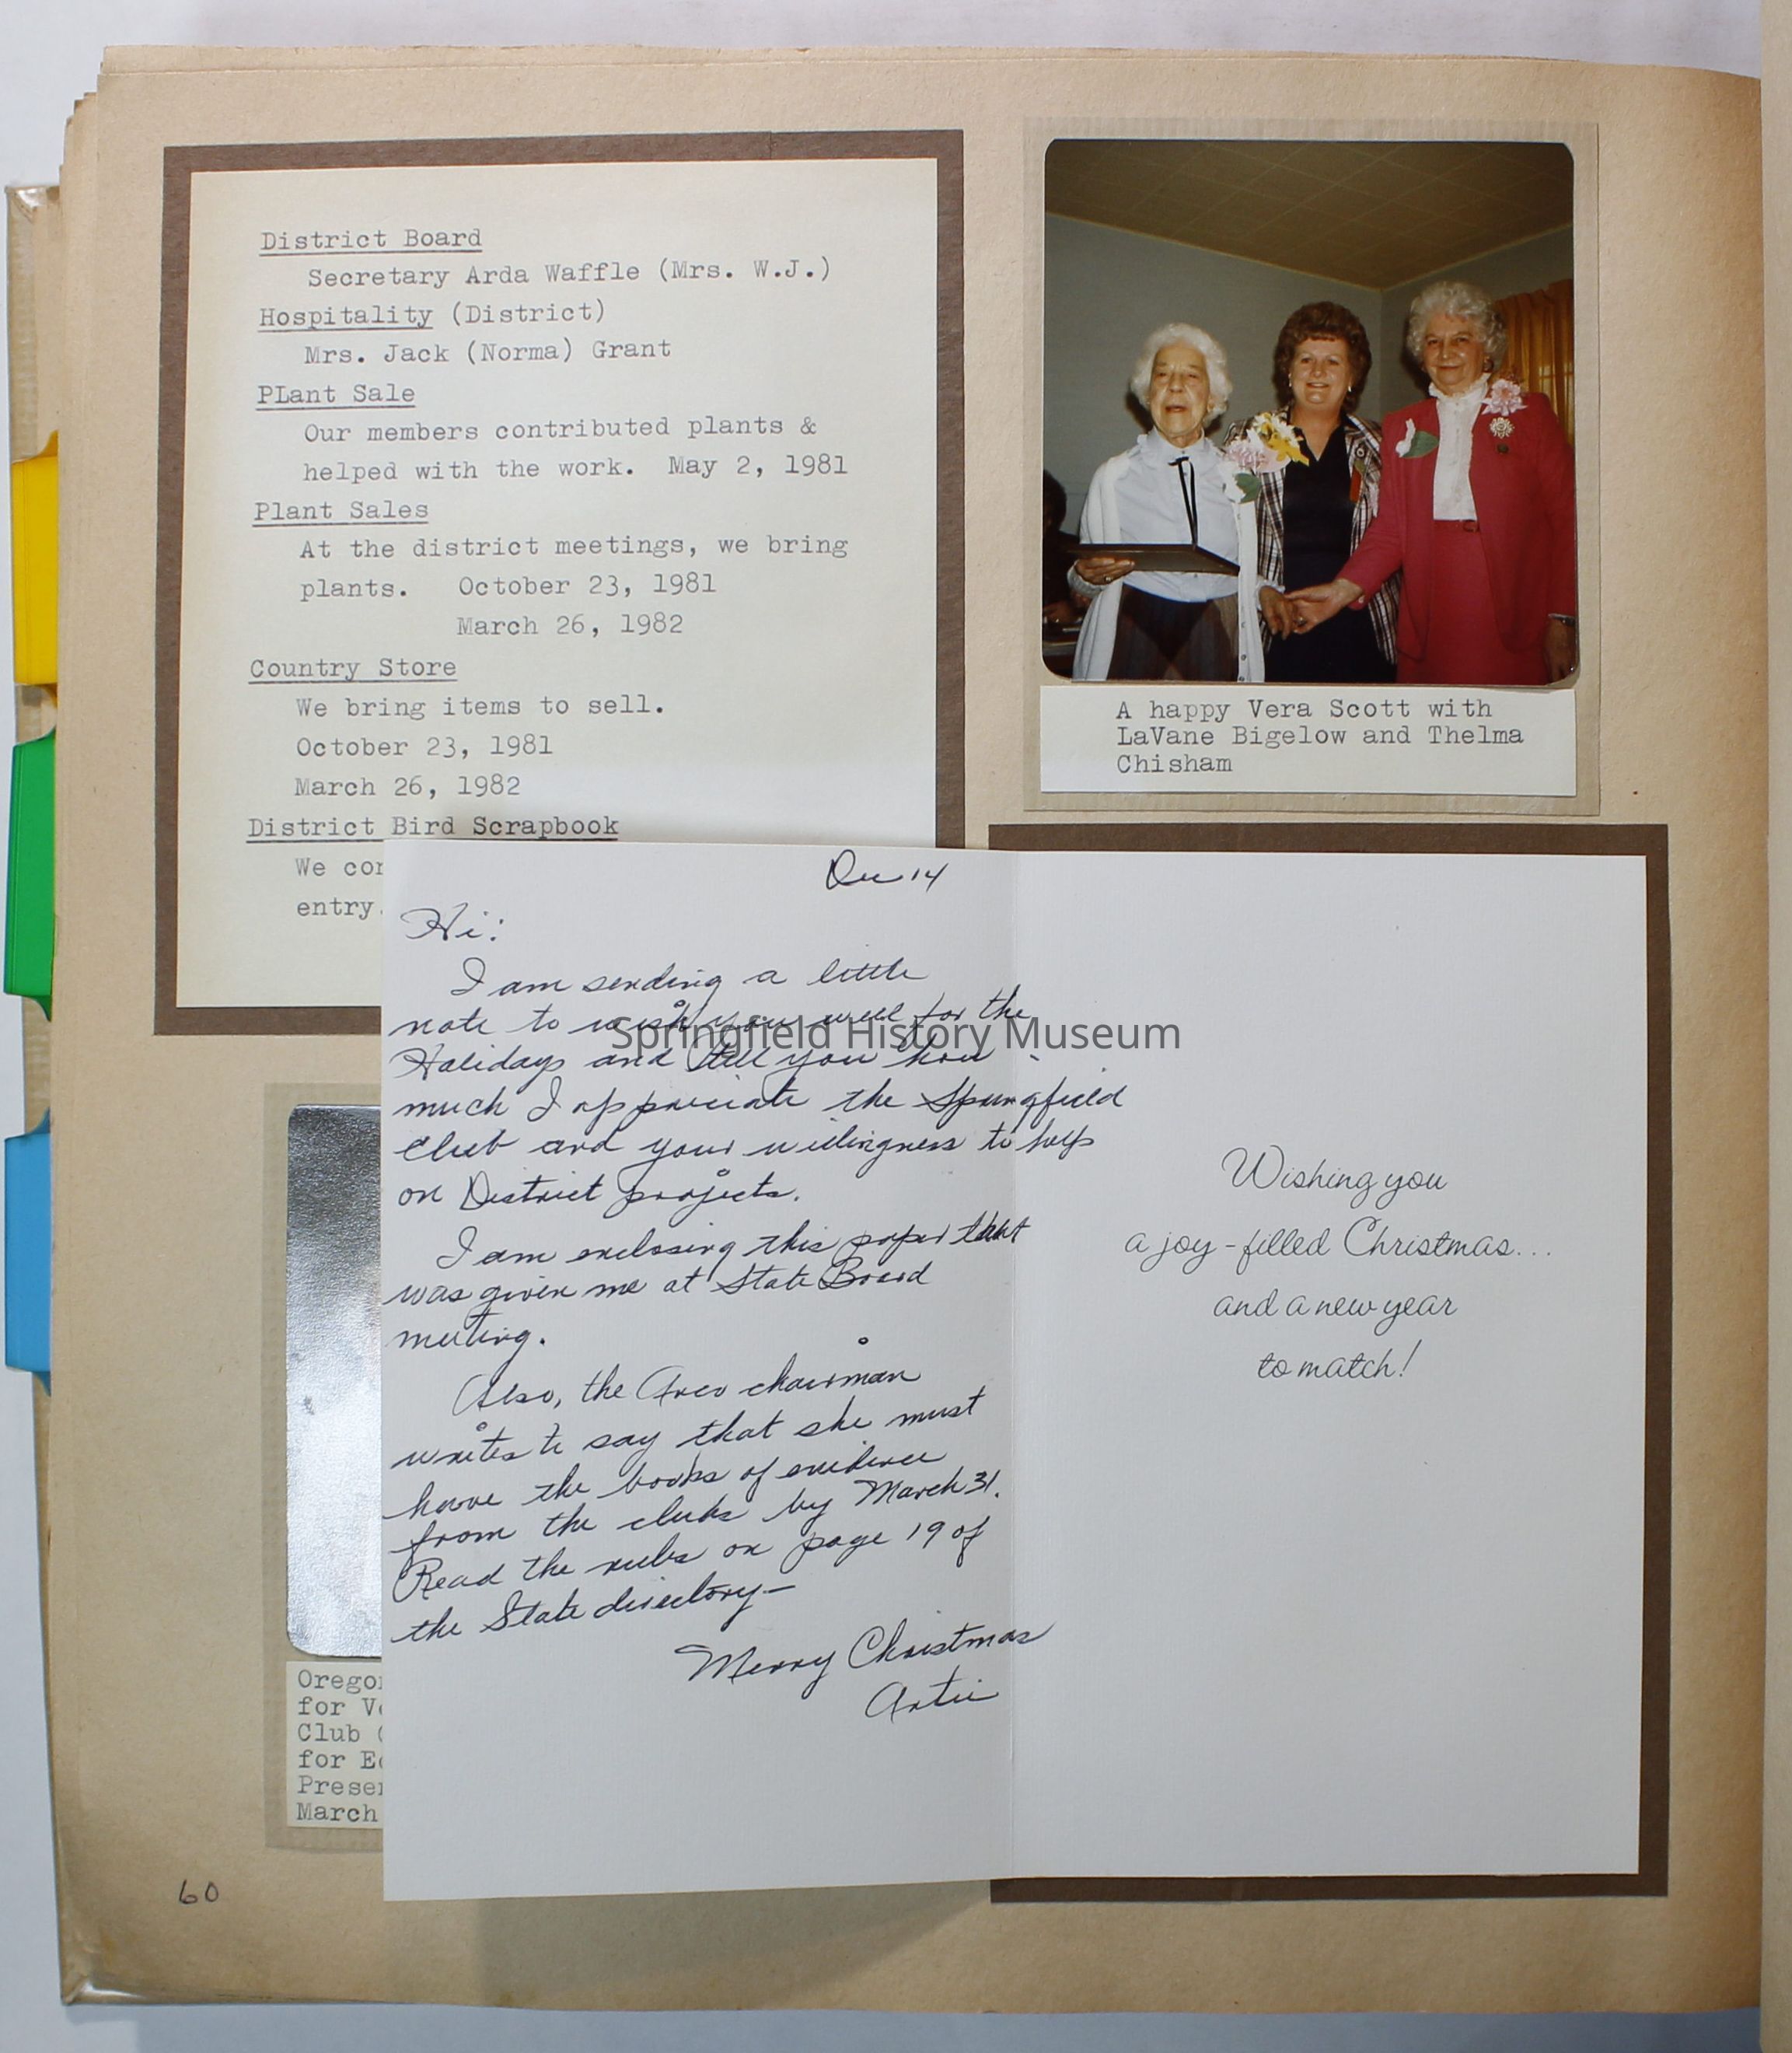 District Board
Secretary Arda Waffle (Mrs. W.J.)
Hospitality (District)
Mrs. Jack (Norma) Grant
PLant Sale
Our members contributed plants &
helped with the work. May 2, 1981
Plant Sales
At the district meetings, we bring
plants. October 23, 1981
March 26, 1982
Country Store
We bring items to sell.
October 23, 1981
March 26, 1982
District Bird Scrapbook
We cor
entry.
A happy Vera Scott with
LaVane Bigelow and Thelma
Chisham
Dec 14
Hi:
I am sending a little
note to wish you well for the
Holidays and tell you how
much I appreciate the Springfield
Club and your willingness to help
on District projects.
I am enclosing this paper that
was given me at State Board
meeting.
Also, the Area chairman
writes to say that she must
have the books of evidence
from the clubs by March 31.
Read the rules on page 19 of
the State directory—
Merry Christmas
Artie
Wishing you
a joy-filled Christmas...
and a new year
to match!
Springfield History Museum
Oregon
for Ve
Club (
for Ed
Presen
March
60